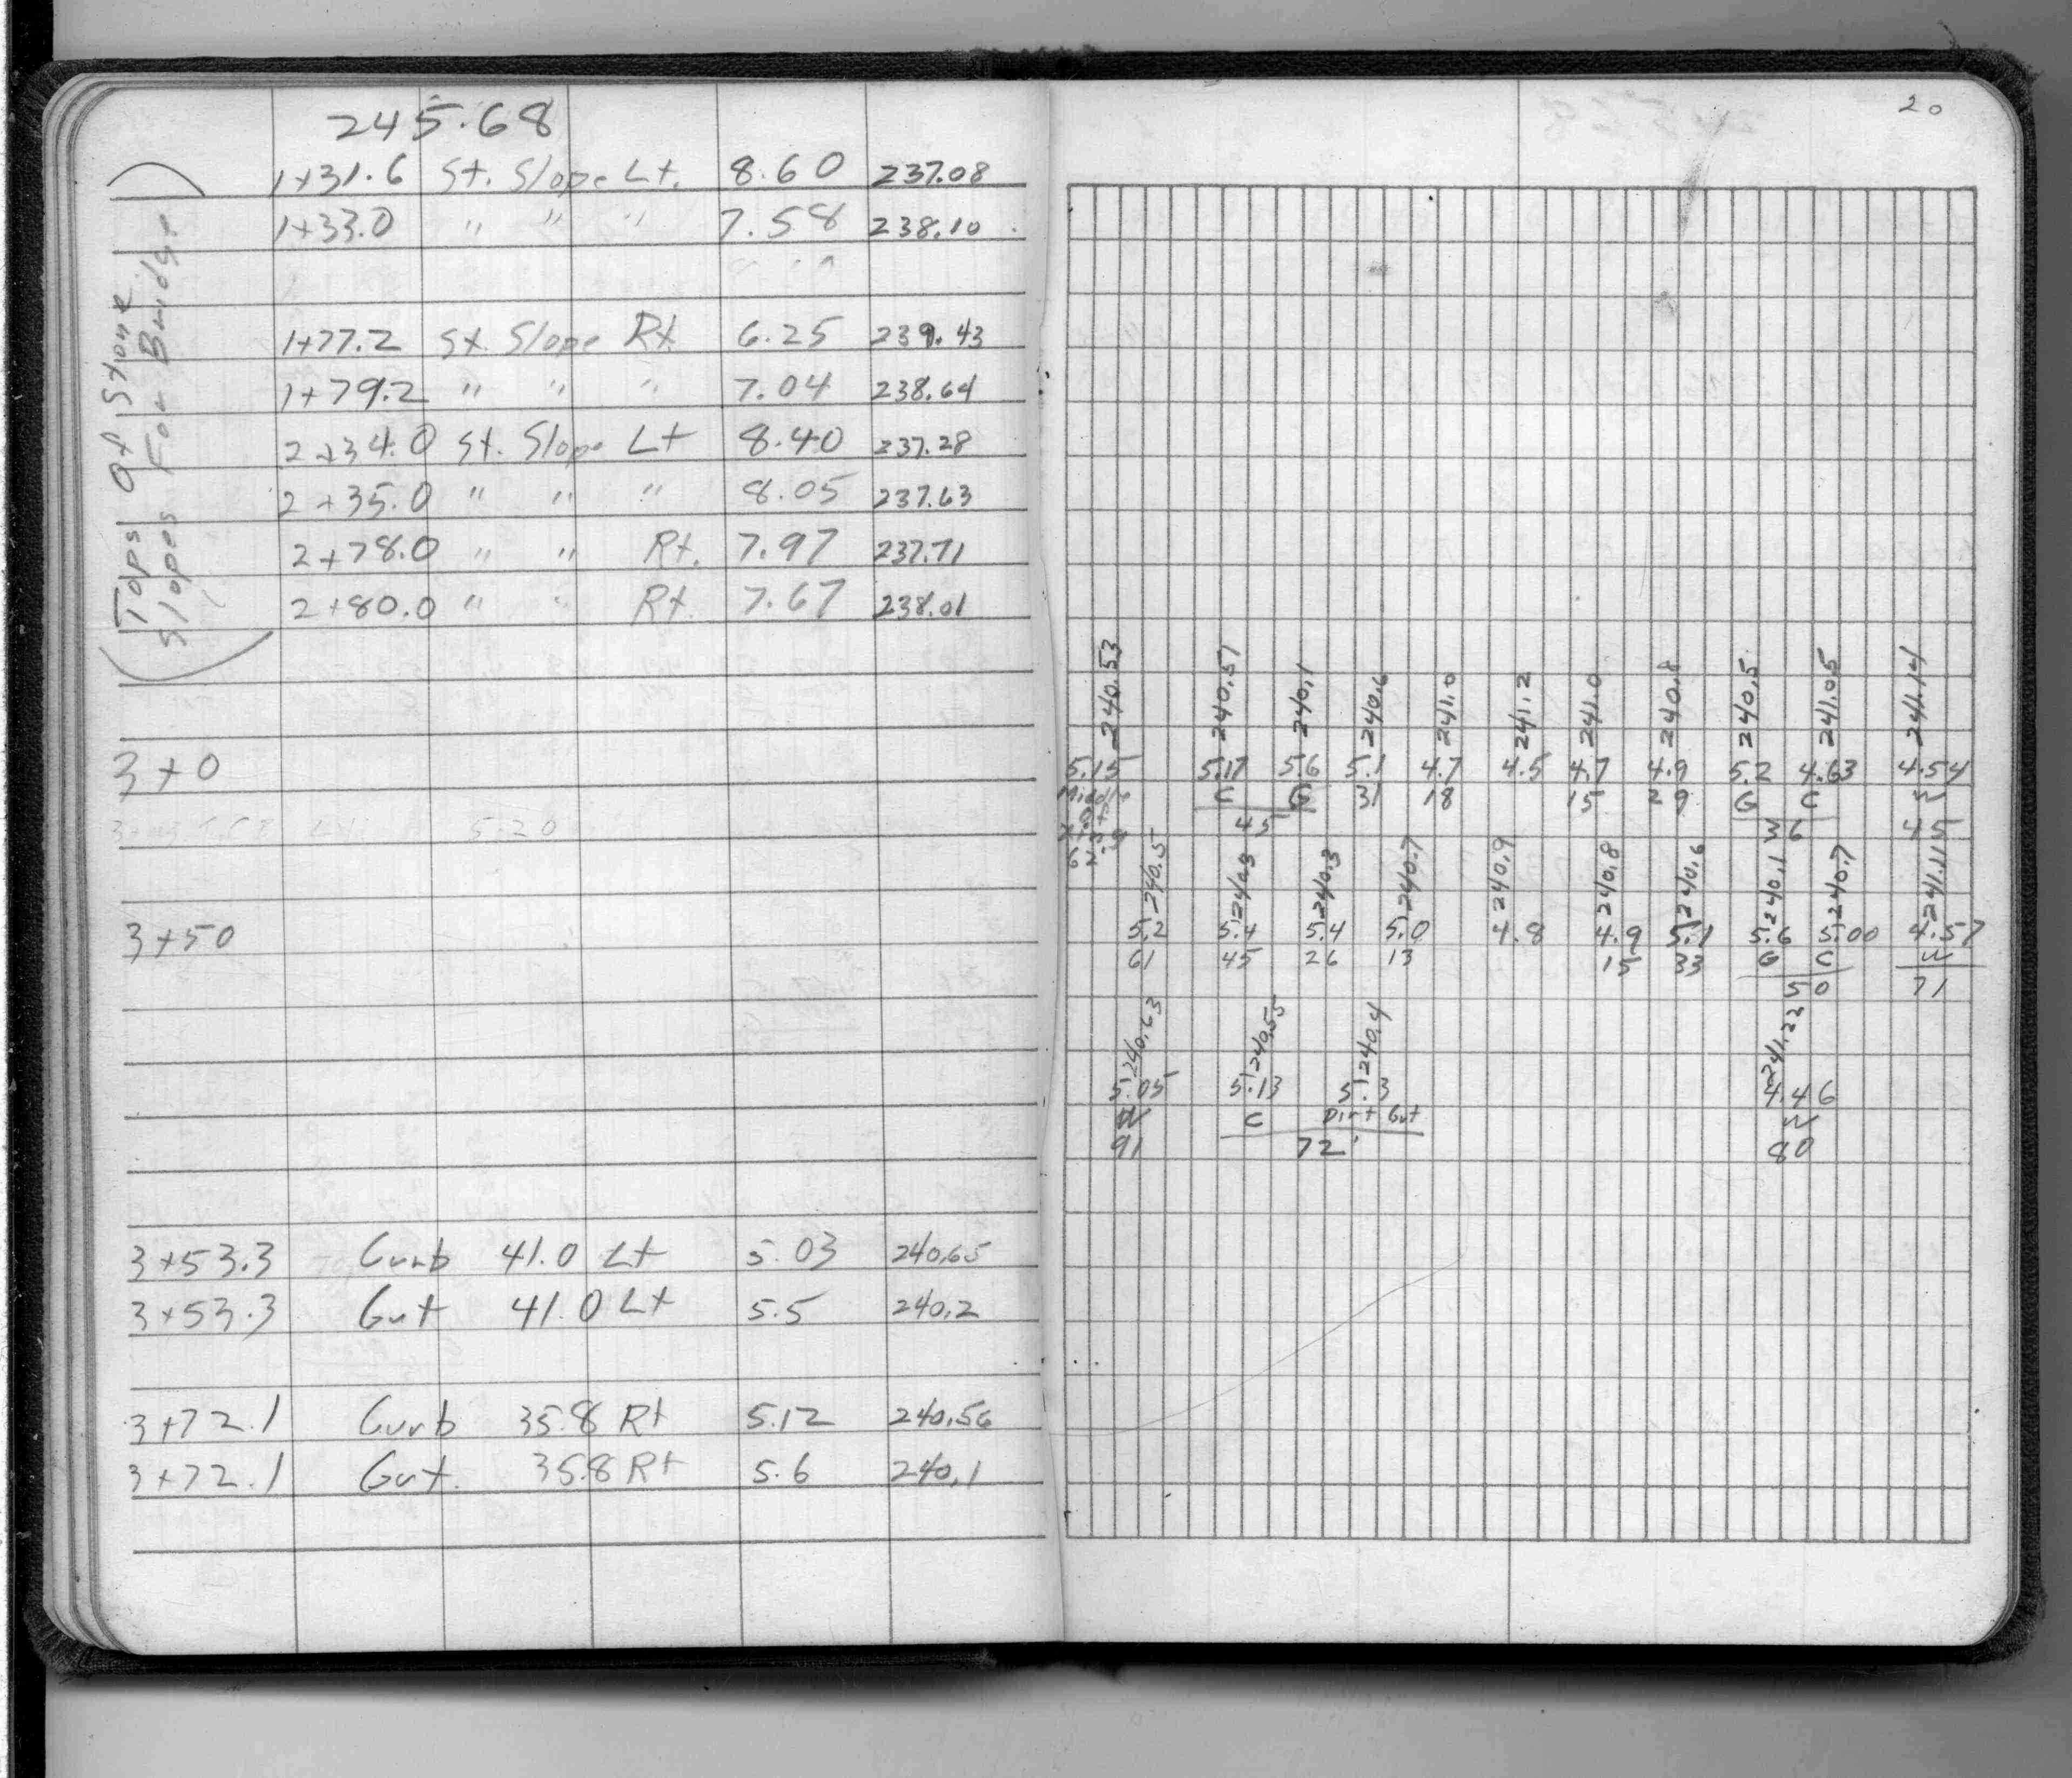 245.68
(Tops Of Stone
Slopes For Bridge)
1+31.6 St. Slope Lt. 8.60 237.08
1+33.0 " " " 7.58 238.10
1+77.2 St. Slope Rt. 6.25 239.43
1+79.2 " " " 7.04 238.64
2+34.0 St. Slope Lt 8.40 237.28
2+35.0 " " " 8.05 237.63
2+78.0 " " Rt. 7.97 237.71
2+80.0 " " Rt. 7.67 238.01
3+0
5.20
3+50
3+53.3 Curb 41.0 Lt 5.03 240.65
3+53.3 Gut 41.0 Lt 5.5 240.2
3+72.1 Curb 35.8 Rt 5.12 240.56
3+72.1 Gut. 35.8 Rt 5.6 240.1
20
240.53 240.51 240.1 240.6 241.0 241.2 241.0 240.8 240.5 241.05 241.14
5.15 5.17 5.6 5.1 4.7 4.5 4.7 4.9 5.2 4.63 4.54
Middle C G 31 18 15 29 G C W
45 36 45
240.5 240.3 240.3 240.7 240.9 240.8 240.6 240.1 240.7 241.11
5.2 5.4 5.4 5.0 4.8 4.9 5.1 5.6 5.00 4.57
61 45 26 13 15 33 G C W
50 71
240.63 240.55 240.4 241.22
5.05 5.13 5.3 4.46
W C Dirt Gut W
91 72' 80